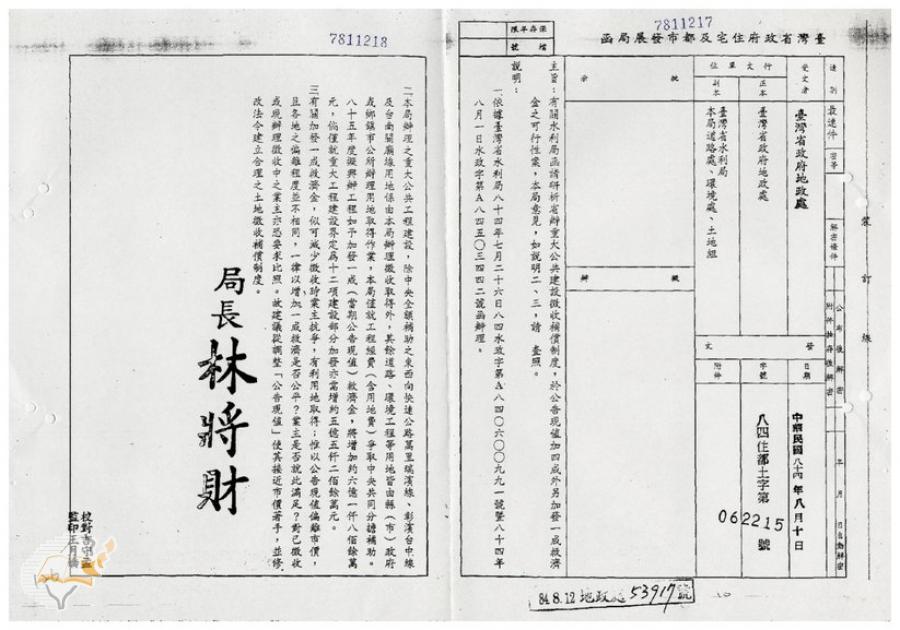 7811217
臺灣省政府住宅及都市發展局函
保存年限
檔號
速別
最速件
密等
解密條件
公布後解密
附件抽存後解密
年 月 日自動解密
受文者
臺灣省政府地政處
行文單位
正本
臺灣省政府地政處
副本
臺灣省水利局
本局道路處、環境處、土地組
發文
日期
中華民國八十四年八月十日
字號
八四住都土字第062215號
附件
批示
擬辦
裝訂線
主旨：有關水利局函請研析省辦重大公共建設徵收補償制度，於公告現值加四成外另加發一成救濟
金之可行性案，本局意見，如說明二、三，請 查照。
說明：
一、依據臺灣省水利局八十四年七月二十六日八四水政字第A八四〇六〇〇九九一號暨八十四年
八月一日水政字第A八四五〇三四四二號函辦理。
84.8.12 地政 53917號
7811218
二、本局辦理之重大公共工程建設，除中央全額補助之東西向快速公路萬里瑞濱線、彰濱台中線
及台南關廟線用地係由本局辦理徵收取得外，其餘道路、環境工程等用地皆由縣（市）政府
或鄉鎮市公所辦理用地取得作業，本局僅就工程經費（含用地費）爭取中央共同分擔補助。
八十五年度擬興辦工程如予加發一成（當期公告現值）救濟金，將增加約六億一仟八佰餘萬
元，倘僅就重大工程建設界定為十二項建設部分加發亦需增約五億五仟二佰餘萬元。
三、有關加發一成救濟金，似可減少徵收時業主抗爭，有利用地取得；惟以公告現值偏離市價，
且各地之偏離程度並不相同，一律以增加一成救濟是否公平？業主是否就此滿足？對已徵收
或現辦理徵收中之業主亦恐要求比照。故建議從調整「公告現值」使其接近市價著手，並修
改法令建立合理之土地徵收補償制度。
局長 林將財
校對
監印王月